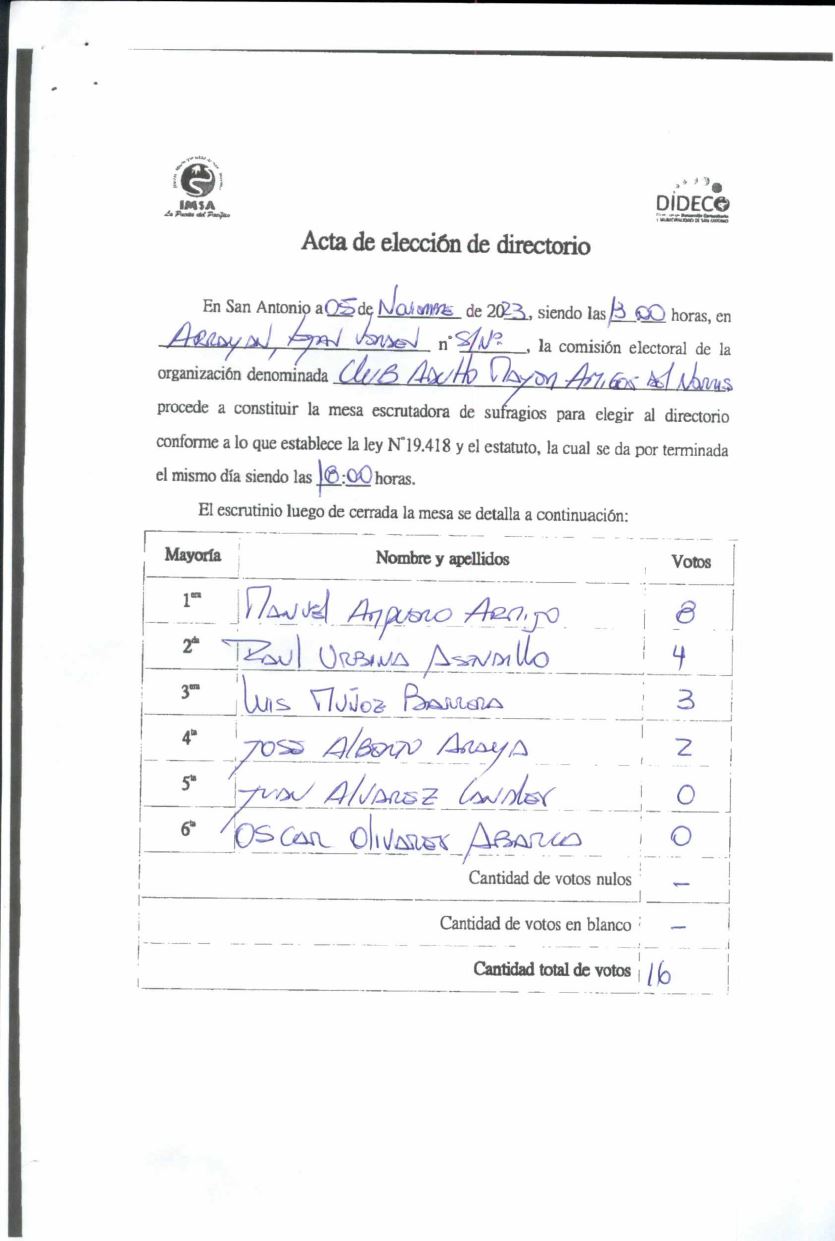 IMSA
La Puerta del Pacífico
DIDECO
Acta de elección de directorio
En San Antonio a 05 de Noviembre de 2023, siendo las 13 00 horas, en
Arrayan, n° S/N°, la comisión electoral de la
organización denominada Club Adulto Mayor Amigos del
procede a constituir la mesa escrutadora de sufragios para elegir al directorio
conforme a lo que establece la ley N°19.418 y el estatuto, la cual se da por terminada
el mismo día siendo las 18:00 horas.
El escrutinio luego de cerrada la mesa se detalla a continuación:
Mayoría Nombre y apellidos Votos
1era Manuel Ampuero 8
2da Raul Urbina 4
3era Luis Muñoz Barrera 3
4ta Jose Alberto Araya 2
5ta Juan Alvarez 0
6ta Oscar Olivares Abarca 0
Cantidad de votos nulos –
Cantidad de votos en blanco –
Cantidad total de votos 16